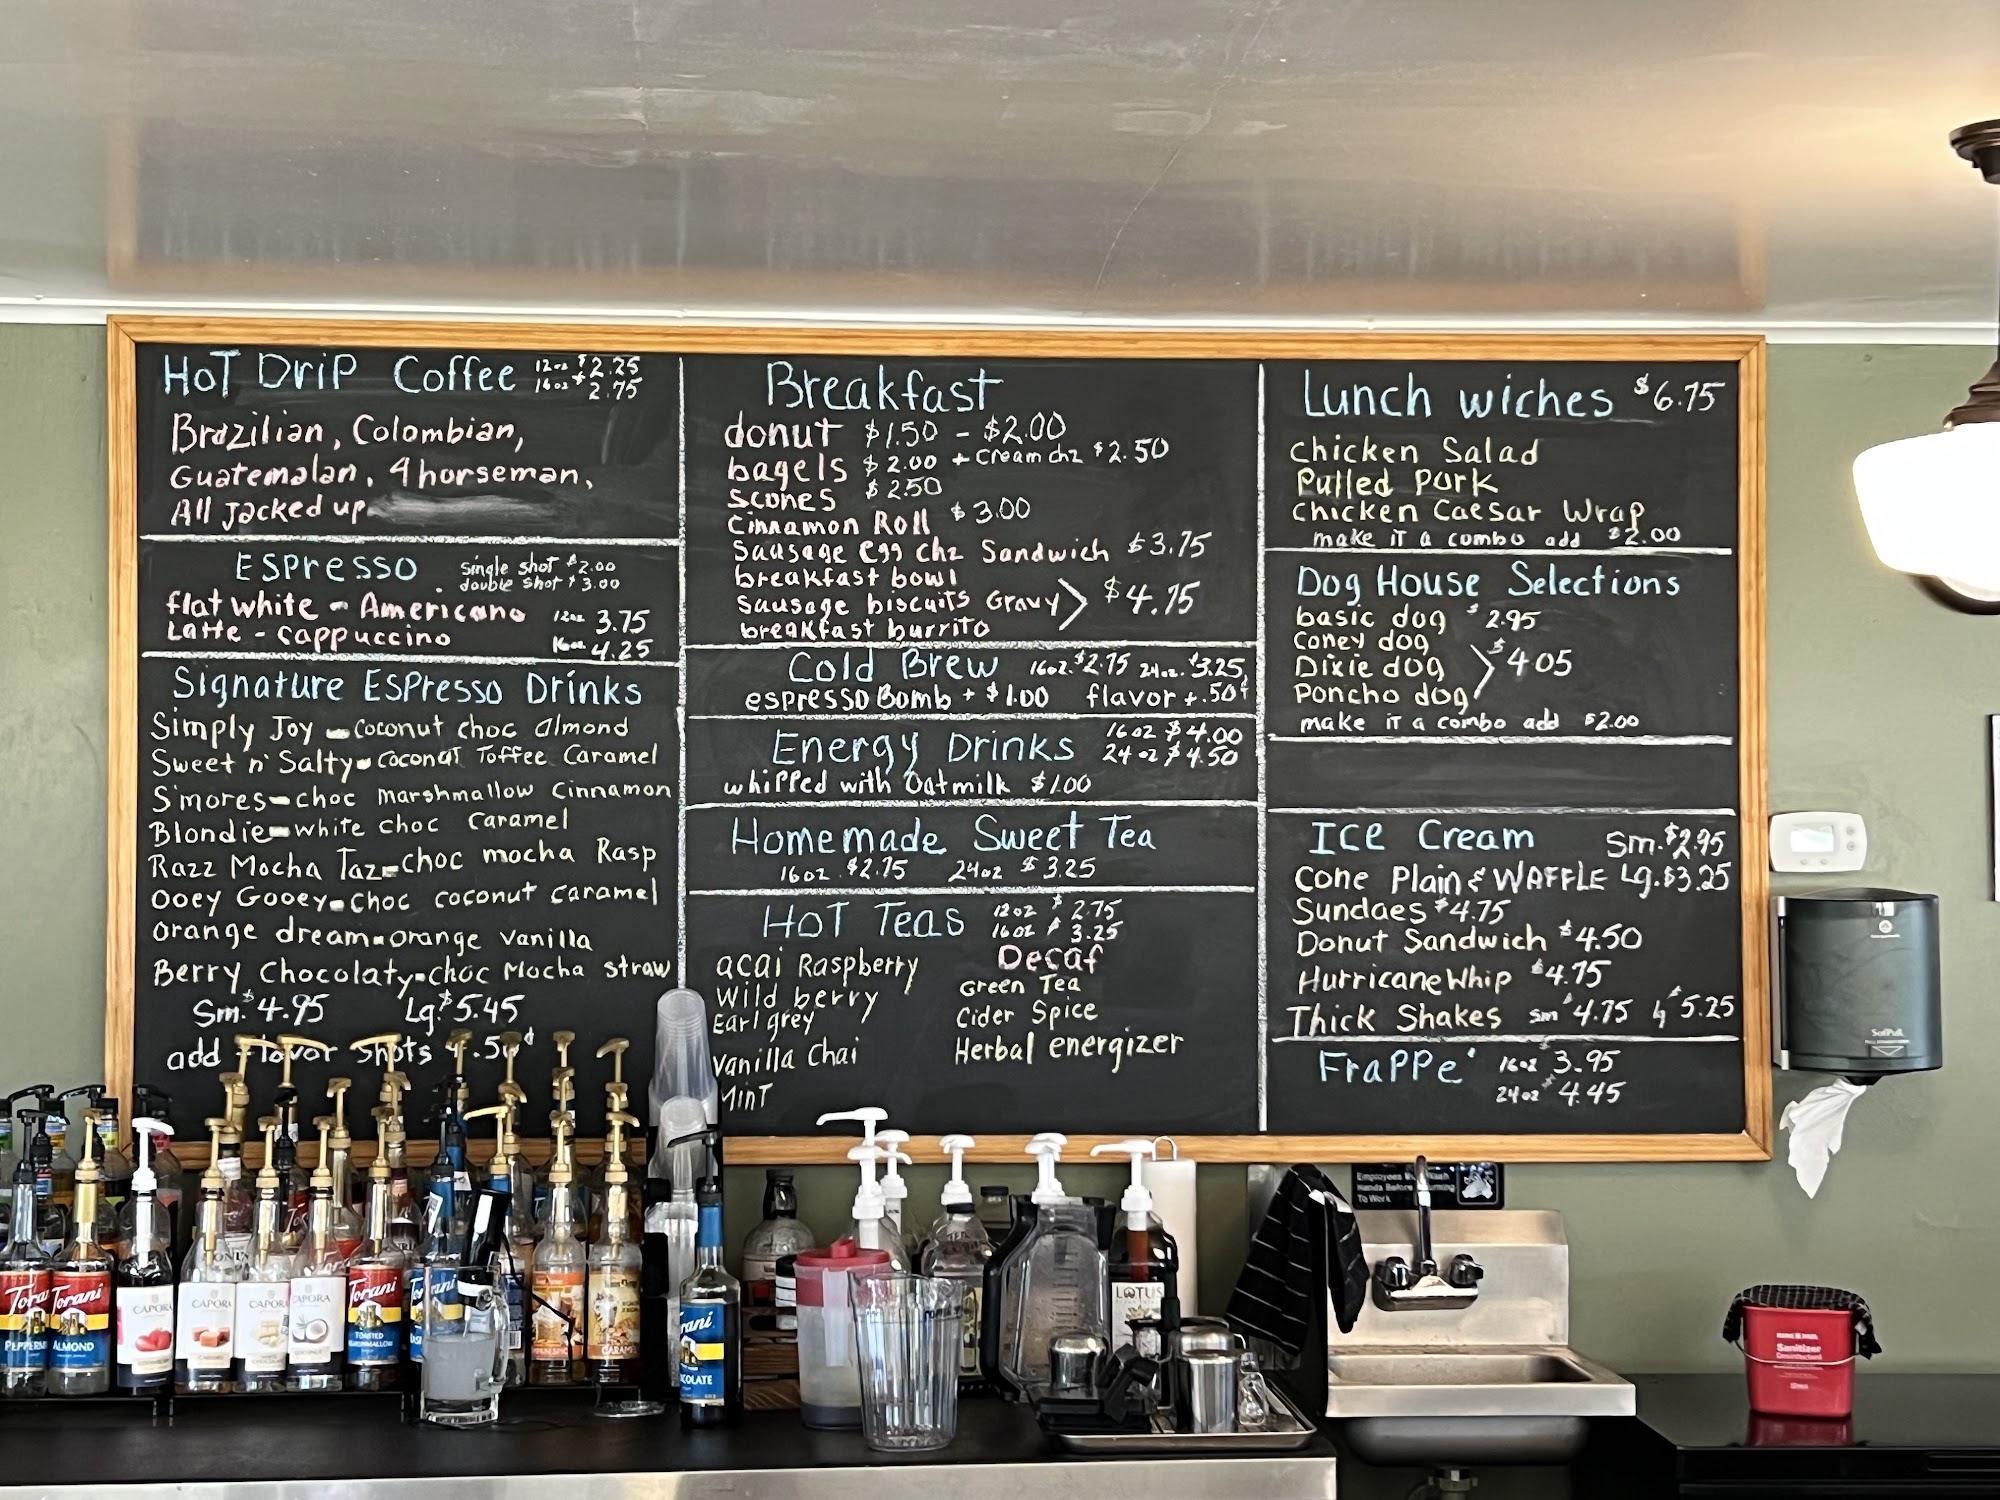 HOT DRIP Coffee 12oz $2.25
16oz $2.75
Brazilian, Colombian,
Guatemalan, 4 horseman,
All Jacked up
Espresso single shot $2.00
double shot $3.00
flat white - Americano 12oz 3.75
Latte - cappuccino 16oz 4.25
Signature Espresso Drinks
Simply Joy - coconut choc almond
Sweet n' Salty - coconut Toffee Caramel
S'mores - choc marshmallow cinnamon
Blondie - white choc caramel
Razz Mocha Taz - choc mocha Rasp
Ooey Gooey - choc coconut caramel
orange dream - orange vanilla
Berry Chocolaty - choc Mocha straw
Sm. $4.95 Lg. $5.45
add flavor shots
Breakfast
donut $1.50 - $2.00
bagels $2.00 + cream chz $2.50
scones $2.50
Cinnamon Roll $3.00
Sausage egg chz Sandwich $3.75
breakfast bowl
sausage biscuits Gravy > $4.75
breakfast burrito
Cold Brew 16oz. $2.75 24oz. $3.25
espresso Bomb + $1.00 flavor + .50¢
Energy Drinks 16oz $4.00
24oz $4.50
whipped with Oatmilk $1.00
Homemade Sweet Tea
16oz $2.75 24oz $3.25
HOT TEAS 12oz $2.75
16oz $3.25
acai Raspberry
Wild berry
Earl grey
Vanilla Chai
Mint
Decaf
Green Tea
Cider Spice
Herbal energizer
Lunch wiches $6.75
Chicken Salad
Pulled Pork
Chicken Caesar Wrap
make it a combo add $2.00
Dog House Selections
basic dog $2.95
Coney dog
Dixie dog > $4.05
Poncho dog
make it a combo add $2.00
Ice Cream Sm. $2.95
Cone Plain & WAFFLE Lg. $3.25
Sundaes $4.75
Donut Sandwich $4.50
Hurricane Whip $4.75
Thick Shakes sm $4.75 lg $5.25
FraPPe' 16oz $3.95
24oz $4.45
Torani
Torani
ALMOND
CAPORA
CAPORA
CAPORA
CAPORA
COCONUT
Torani
TOASTED
MARSHMALLOW
CARAMEL
LOTUS
Employees Must Wash
Hands Before Returning
To Work
Sanitizer
SofPull